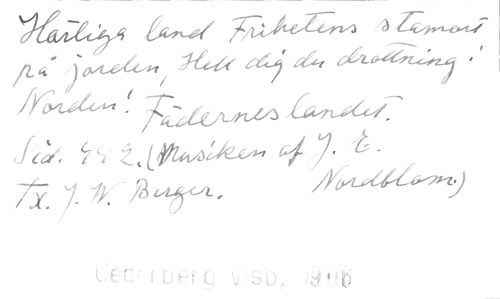 Härliga land Frihetens stamort
på jorden, Hell dig du drottning i
Norden! Fäderneslandet.
Sid. 442. (Musiken af J. E.
Tx. J. W. Berger. Nordblom.)
Cederberg visb,